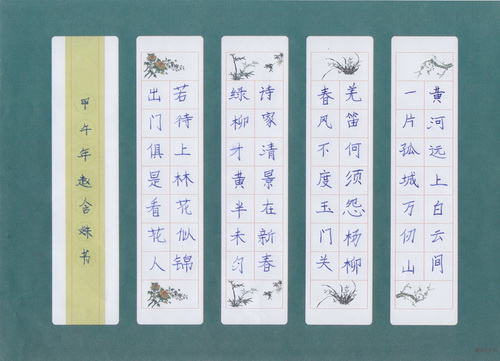 黄河远上白云间
一片孤城万仞山
羌笛何须怨杨柳
春风不度玉门关
诗家清景在新春
绿柳才黄半未匀
若待上林花似锦
出门俱是看花人
甲午年赵含姝书